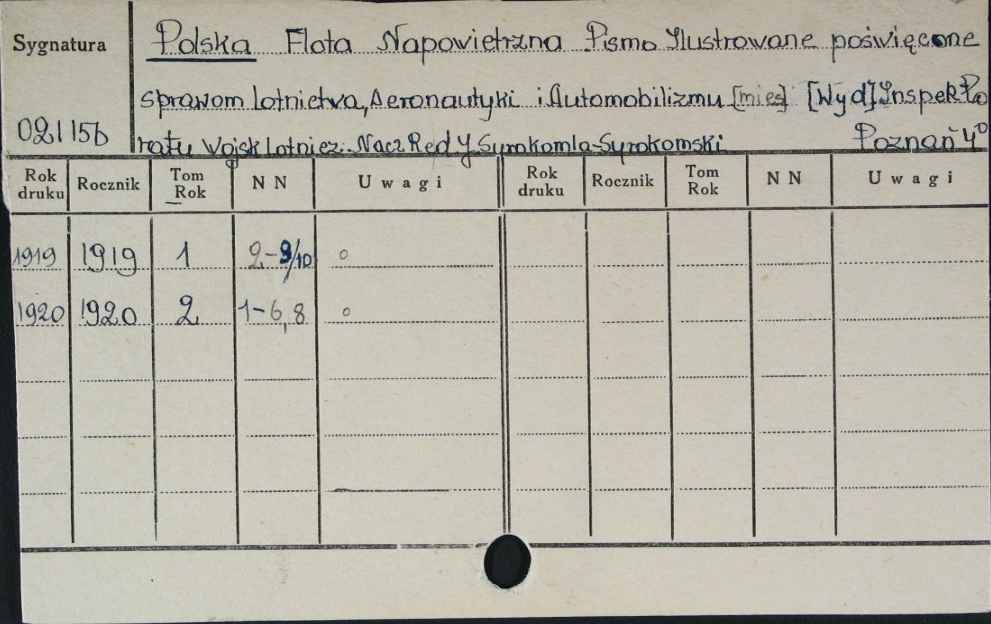 Sygnatura
Polska Flota Napowietrzna Pismo Ilustrowane poświęcone
sprawom Lotnictwa, Aeronautyki i Automobilizmu [mies] [Wyd] Inspekto
ratu Wojsk Lotnicz. Nacz Red Y Syrokomla-Syrokomski Poznań 4°
021156
Rok druku Rocznik Tom Rok N N Uwagi Rok druku Rocznik Tom Rok N N Uwagi
1919 1919 1 2-9/10 o
1920 1920 2 1-6,8 o